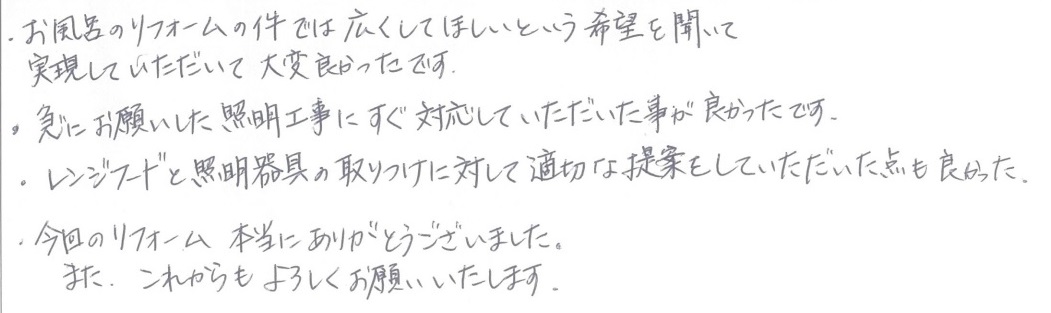 ・お風呂のリフォームの件では広くしてほしいという希望を聞いて
実現していただいて大変良かったです.
・急にお願いした照明工事にすぐ対応していただいた事が良かったです.
・レンジフードと照明器具の取りつけに対して適切な提案をしていただいた点も良かった.
・今回のリフォーム 本当にありがとうございました。
また. これからもよろしくお願いいたします.